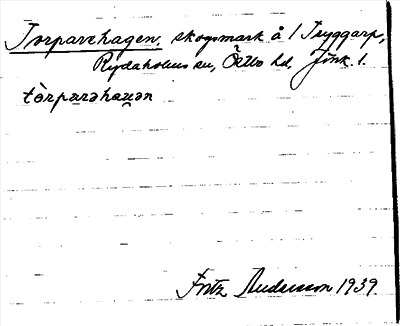 Torparehagen, skogsmark å 1 Tryggarp,
Rydaholms sn, Östbo hd, Jönk. l.
tòrparəhaɡən
Fritz Andersson 1939.